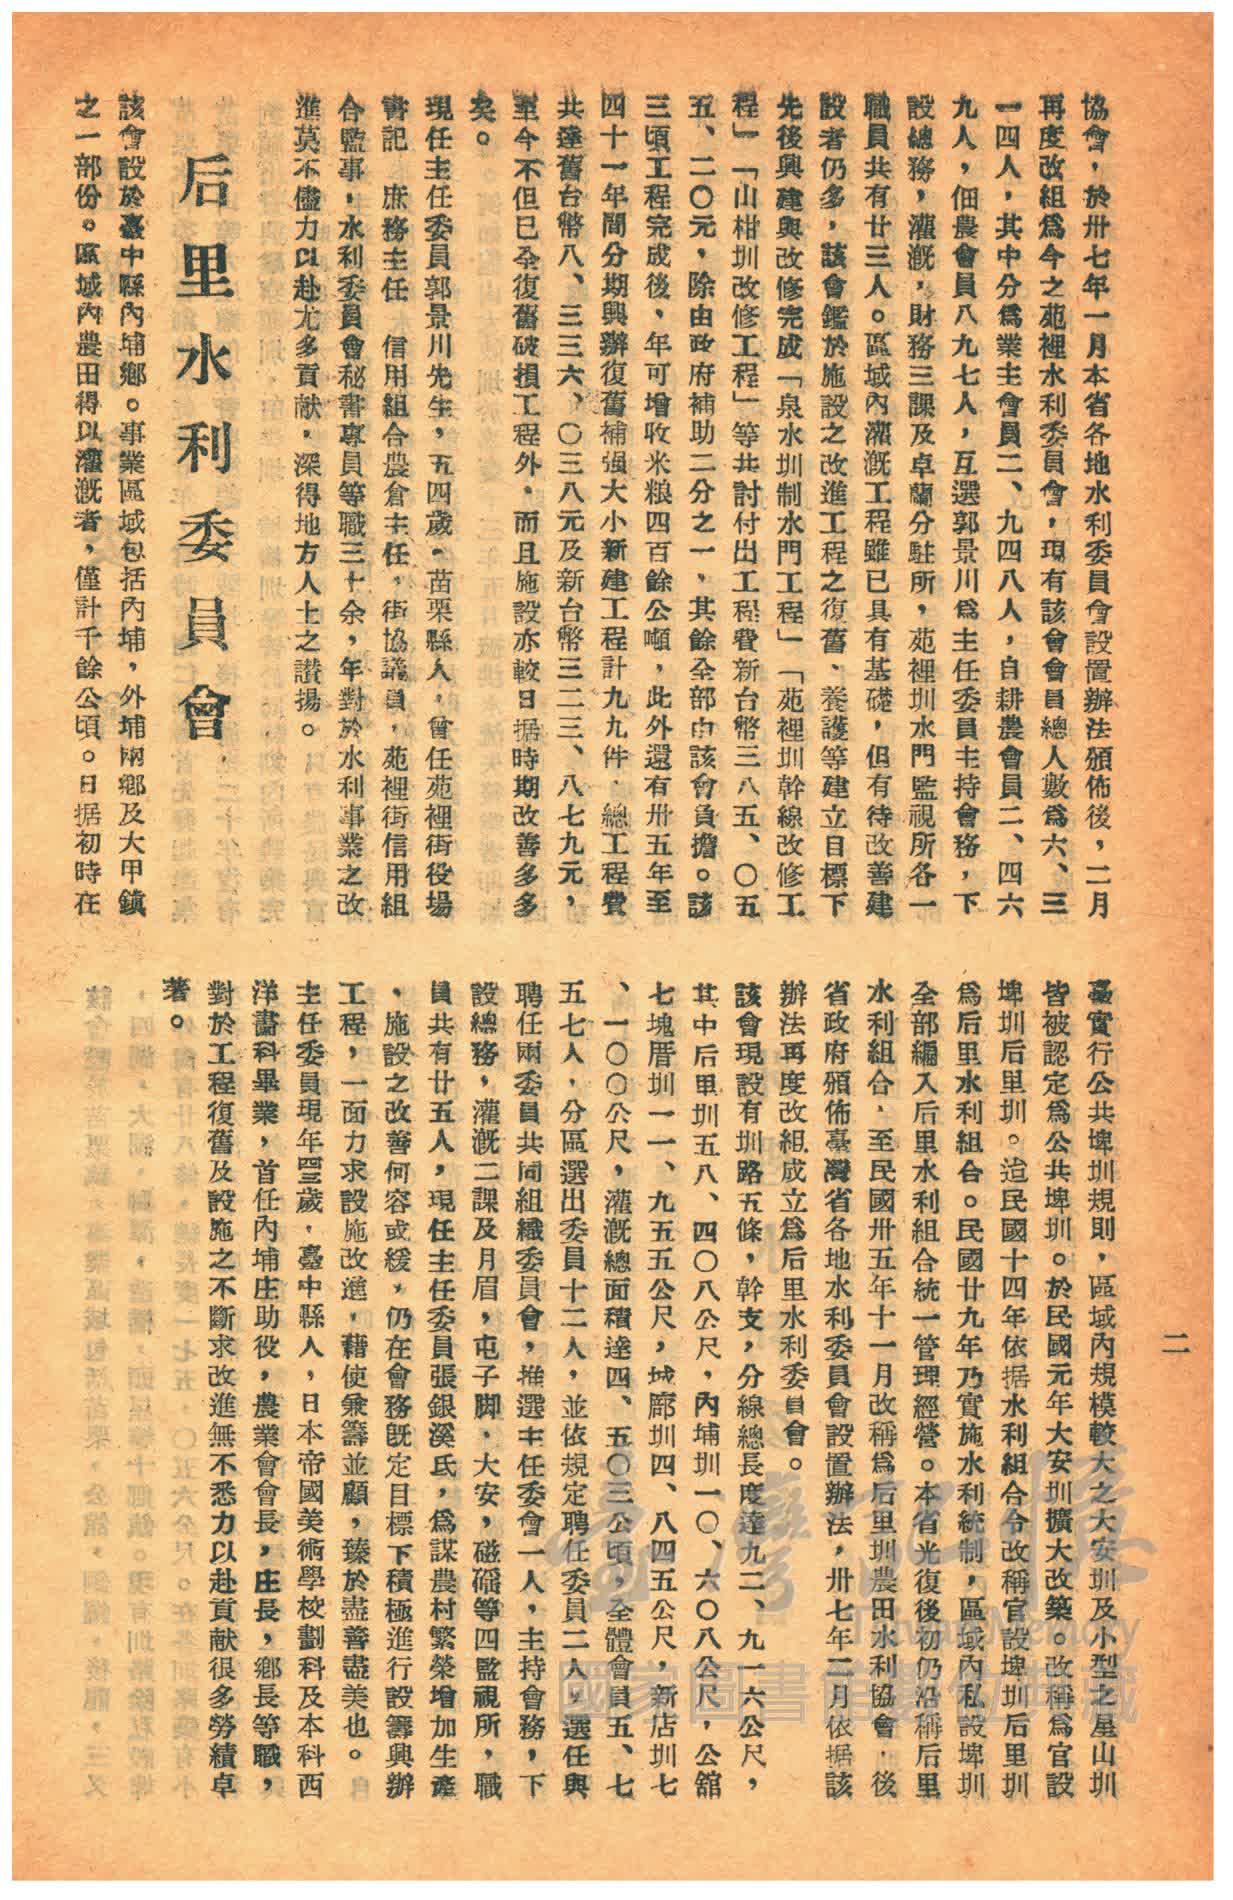 協會，於卅七年一月本省各地水利委員會設置辦法頒佈後，二月
再度改組爲今之苑裡水利委員會，現有該會會員總人數爲六、三
一四人，其中分爲業主會員二、九四八人，自耕農會員二、四六
九人，佃農會員八九七人，互選郭景川爲主任委員主持會務，下
設總務，灌漑，財務三課及卓蘭分駐所，苑裡圳水門監視所各一
職員共有廿三人。區域內灌漑工程雖已具有基礎，但有待改善建
設者仍多，該會鑑於施設之改進工程之復舊、養護等建立目標下
先後興建與改修完成「泉水圳制水門工程」「苑裡圳幹線改修工
程」「山柑圳改修工程」等共討付出工程費新台幣三八五、〇五
五、二〇元，除由政府補助二分之一，其餘全部由該會負擔。該
三頃工程完成後，年可增收米粮四百餘公噸，此外還有卅五年至
四十一年間分期興辦復舊補强大小新建工程計九九件，總工程費
共達舊台幣八、三三六、〇三八元及新台幣三二三、八七九元，
至今不但已全復舊破損工程外，而且施設亦較日据時期改善多多
矣。
現任主任委員郭景川先生，五四歲，苗栗縣人，曾任苑裡街役場
書記　庶務主任　信用組合農倉主任，街協議員，苑裡街信用組
合監事，水利委員會秘書專員等職三十余，年對於水利事業之改
進莫不儘力以赴尤多貢献，深得地方人士之讃揚。
后里水利委員會
該會設於臺中縣內埔鄉。事業區域包括內埔，外埔兩鄉及大甲鎮
之一部份。區域內農田得以灌漑者，僅計千餘公頃。日据初時在
臺實行公共埤圳規則，區域內規模較大之大安圳及小型之星山圳
皆被認定爲公共埤圳。於民國元年大安圳擴大改築。改稱爲官設
埤圳后里圳。迨民國十四年依据水利組合令改稱官設埤圳后里圳
爲后里水利組合。民國廿九年乃實施水利統制，區域內私設埤圳
全部編入后里水利組合統一管理經營。本省光復後初仍沿稱后里
水利組合，至民國卅五年十一月改稱爲后里圳農田水利協會，後
省政府頒佈臺灣省各地水利委員會設置辦法，卅七年二月依据該
辦法再度改組成立爲后里水利委員會。
該會現設有圳路五條，幹支，分線總長度達九二、九一六公尺，
其中后里圳五八、四〇八公尺，內埔圳一〇、六〇八公尺，公舘
七塊厝圳一一、九五五公尺，城廍圳四、八四五公尺，新店圳七
、一〇〇公尺，灌漑總面積達四、五〇三公頃，全體會員五、七
五七人，分區選出委員十二人，並依規定聘任委員二人，選任與
聘任兩委員共同組織委員會，推選主任委會一人，主持會務，下
設總務，灌漑二課及月眉，屯子脚，大安，磁磘等四監視所，職
員共有廿五人，現任主任委員張銀溪氏，爲謀農村繁榮增加生產
、施設之改善何容或緩，仍在會務旣定目標下積極進行設籌興辦
工程，一面力求設施改進，藉使兼籌並顧，臻於盡善盡美也。
主任委員現年四三歲，臺中縣人，日本帝國美術學校劃科及本科西
洋畵科畢業，首任內埔庄助役，農業會會長，庄長，鄉長等職，
對於工程復舊及設施之不斷求改進無不悉力以赴貢献很多勞績卓
著。
二
臺灣記憶
Taiwan Memory
國家圖書館數位典藏